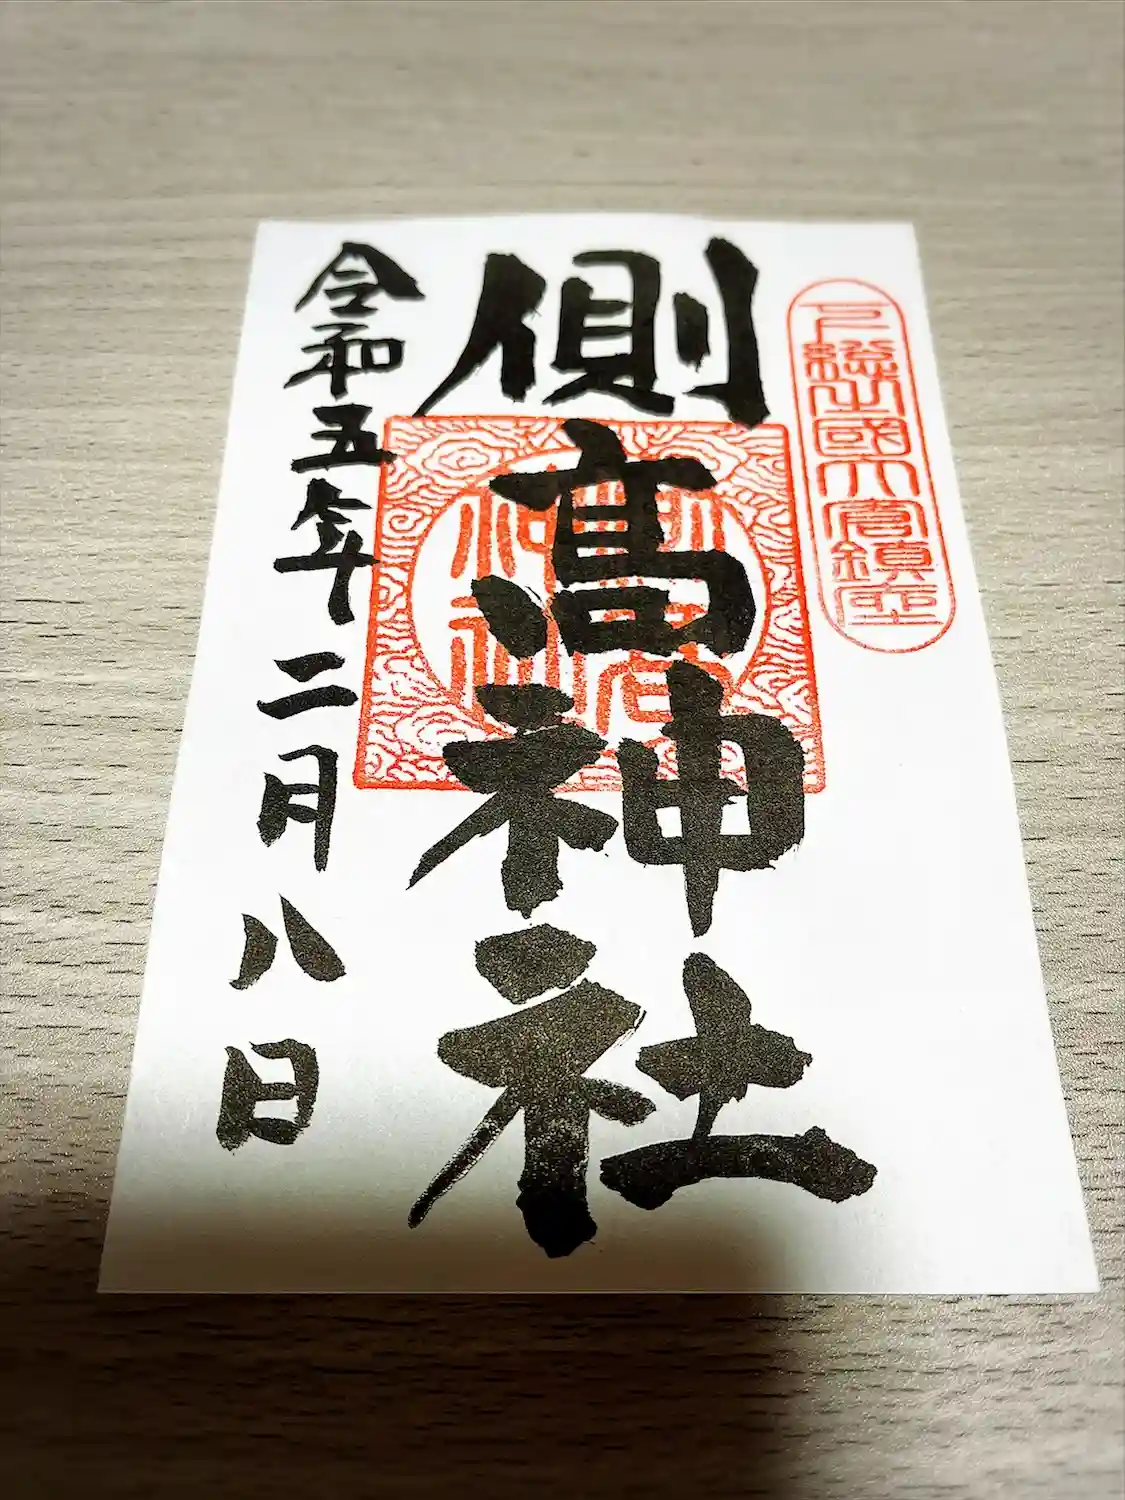 下総之國大倉鎮座
側高神社
側高神社
令和五年二月八日